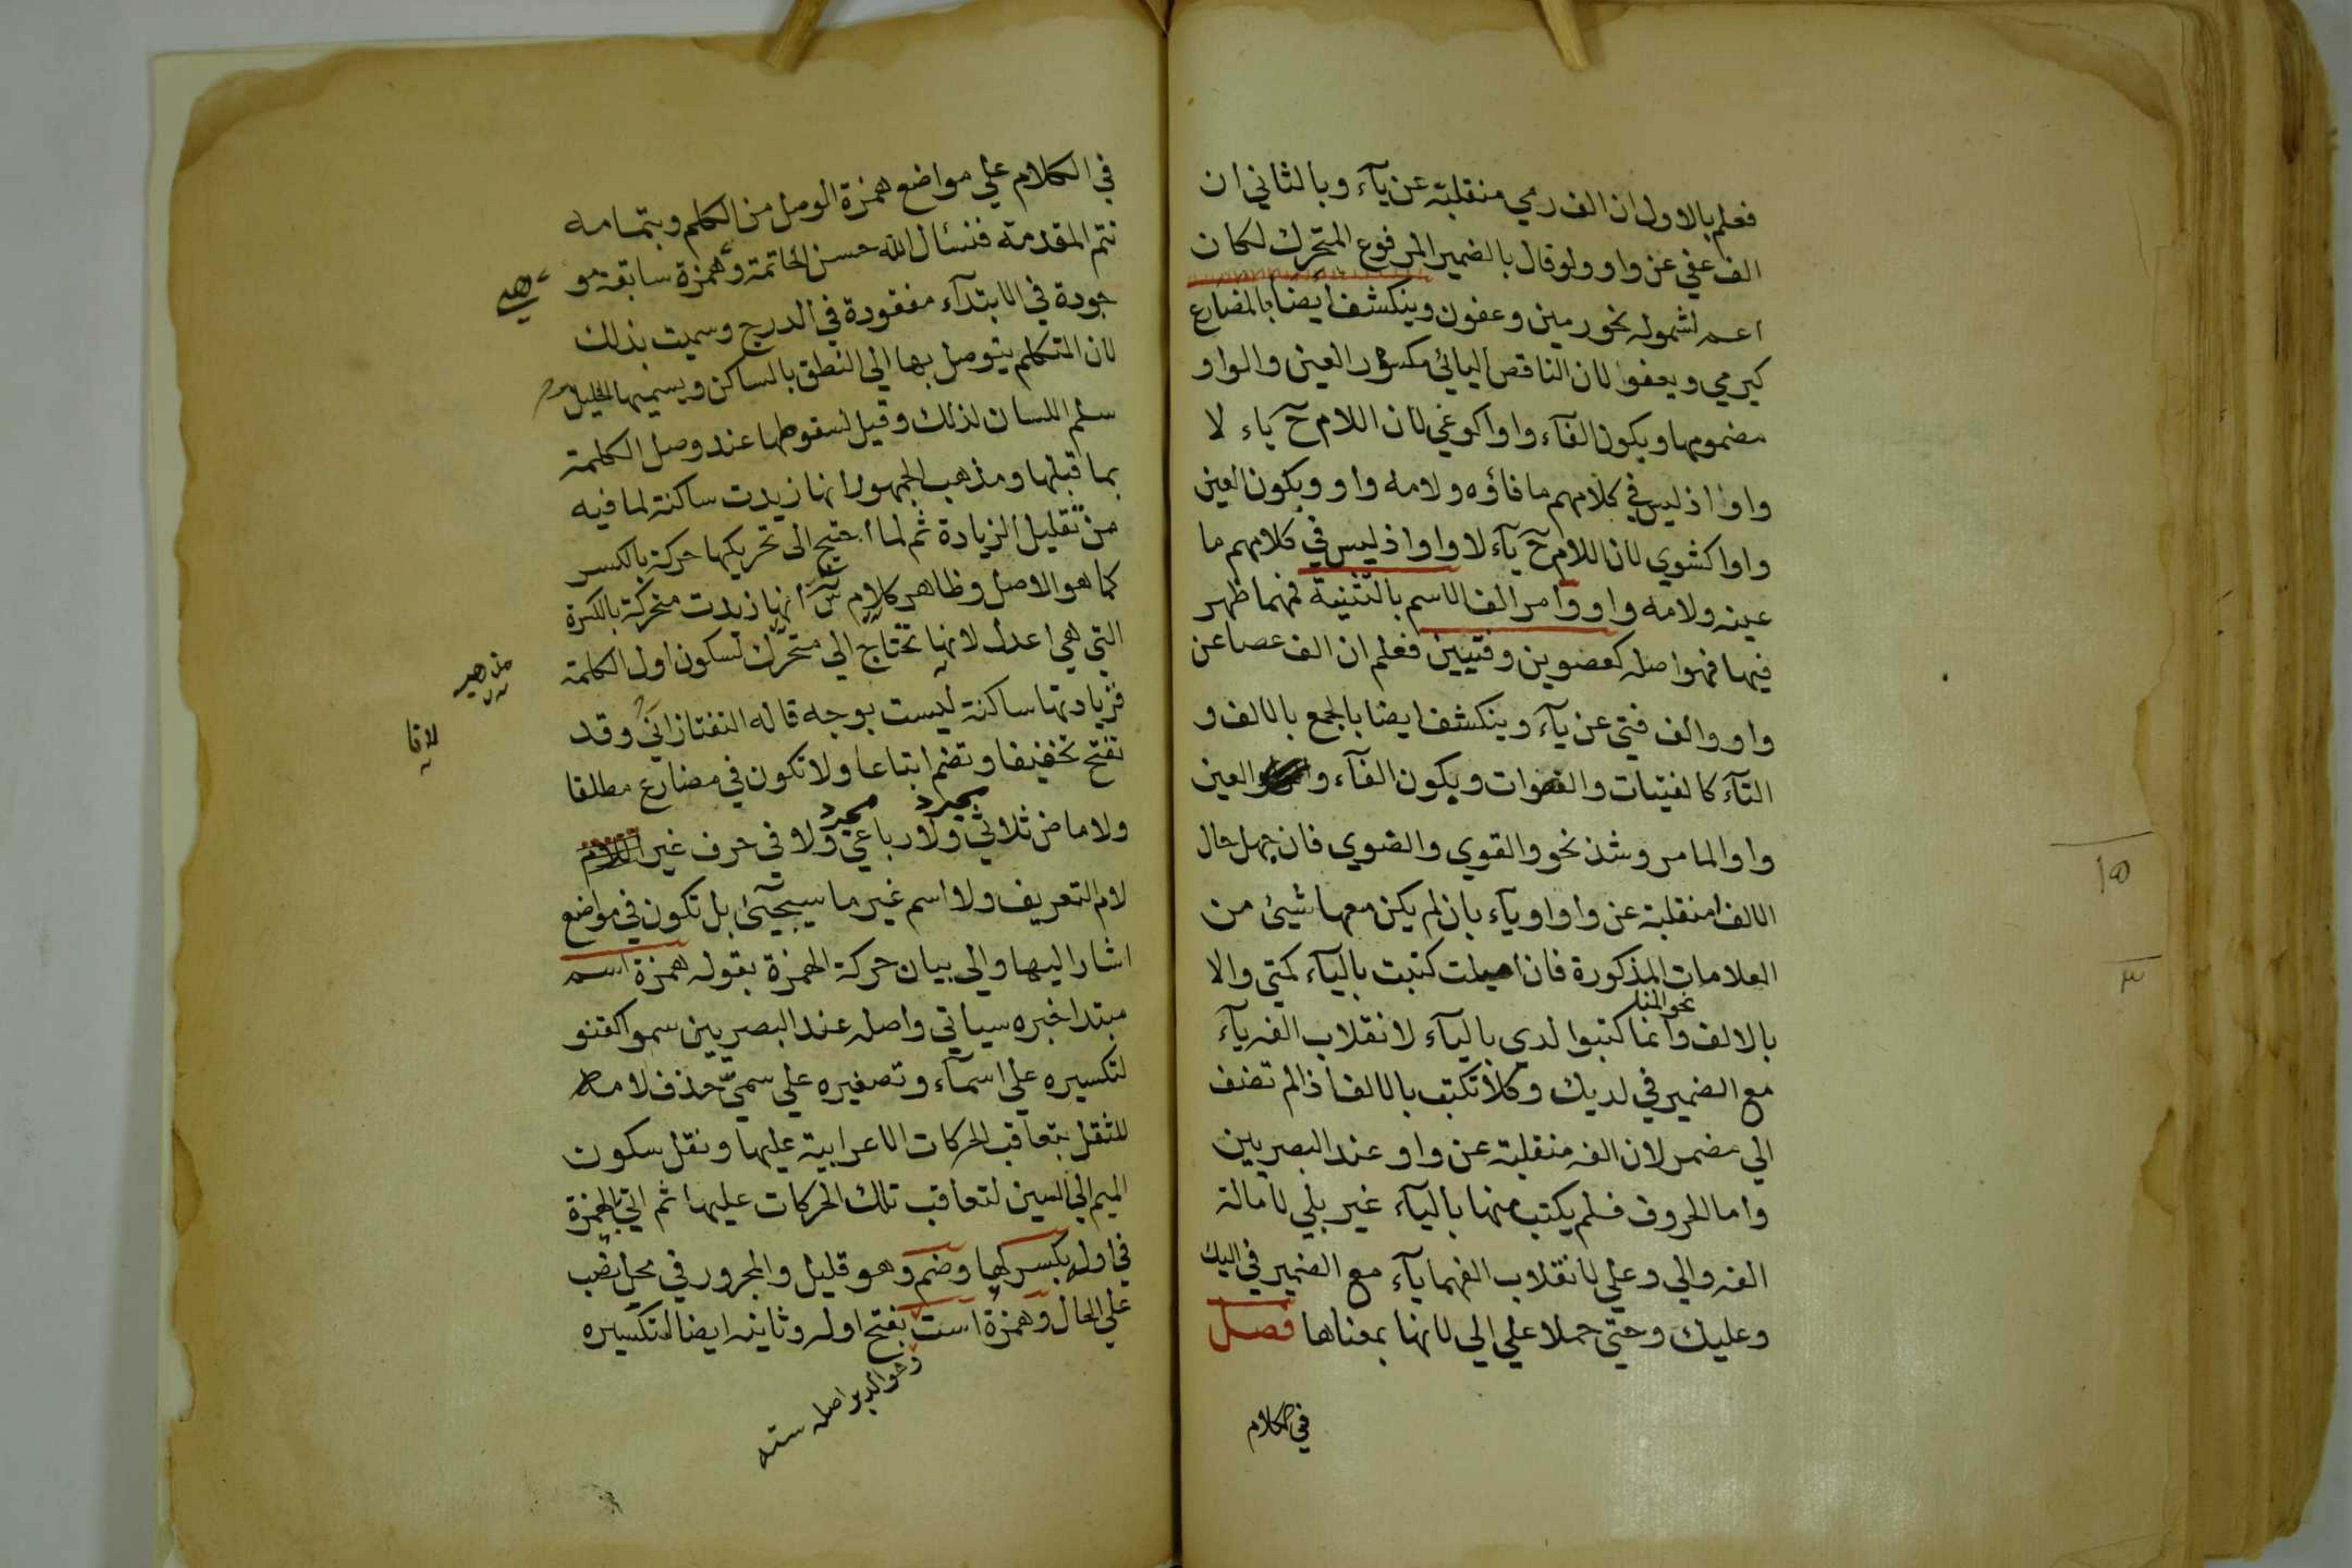 فعلم بالاول ان الف رمي منقلبة عن يآء وبالثاني ان
الف عفي عن واو ولو قال بالضمير المرفوع المتحرك لكان
اعم لشموله نحو رمين وعفون وينكشف ايضا بالمضارع
كيرمي ويعفوا لان الناقص اليائي مكسور العين والواو
مضمومها ويكون الفآء واوا كوغي لان اللام ح ياء لا
واوا اذ ليس في كلامهم ما فاؤه ولامه واو ويكون العين
واوا كشوي لان اللام ح يآء لا واوا اذ ليس في كلامهم ما
عينه ولامه واو وامر الف الاسم بالتثنية فمهما ظهر
فيها فهو اصله كعصوين وفتيين فعلم ان الف عصا عن
واو والف فتي عن يآء وينكشف ايضا بالجمع بالالف و
التآء كالفتيات والقنوات ويكون الفآء و العين
واوا لما مر وشذ نحو والقوي والضوي فان جهل حال
الالف امنقلبة عن واو او يآء بان لم يكن معها شيئ من
العلامات المذكورة فان اميلت كتبت باليآء كمتي والا
نحو المنا
بالالف وانما كتبوا لدي باليآء لانقلاب الفه يآء
مع الضمير في لديك وكلا تكتب بالالف اذا لم تضف
الي مضمر لان الفه منقلبة عن واو عند البصريين
واما الحروف فلم يكتب منها باليآء غير بلي لامالة
الفه والي وعلي لانقلاب الفهما يآء مع الضمير في اليك
وعليك وحتي حملا علي الي لانها بمعناها فصل
في الكلام
في الكلام علي مواضع همزة الوصل من الكلم وبتمامه
تتم المقدمة فنسئال الله حسن الخاتمة وهمزة سابقة مو
وهي
جودة في الابتدآء مفقودة في الدرج وسميت بذلك
لان المتكلم يتوصل بها الي النطق بالساكن ويسميها الخليل
سلم اللسان لذلك وقيل لسقوطها عند وصل الكلمة
بما قبلها ومذهب الجمهور انها زيدت ساكنة لما فيه
من تقليل الزيادة ثم لما احتيج الى تحريكها حركة بالكسر
كما هو الاصل وظاهر كلام س انها زيدت متحركة بالكسرة
التي هي اعدل لانها تحتاج الي متحرك لسكون اول الكلمة
فزيادتها ساكنة ليست بوجه قاله التفتازاني وقد
تفتح تخفيفا وتضم اتباعا ولا تكون في مضارع مطلقا
مجرد مجرد
ولا ماض ثلاثي ولا رباعي ولا في حرف غير
لام التعريف ولا اسم غير ما سيجيئ بل تكون في مواضع
اشار اليها والي بيان حركة الهمزة بقوله همزة اسم
مبتدا خبره سياتي واصله عند البصريين سمو كقنو
لتكسيره علي اسمآء وتصغيره علي سمي حذف لامه
للثقل بتعاقب الحركات الاعرابية عليها ونقل سكون
الميم الي السين لتعاقب تلك الحركات عليها ثم اتي بالهمزة
في اوله بكسر لها وضم وهو قليل والمجرور في محل نصب
علي الحال وهمزة است بفتح اوله وثانيه ايضا لتكسيره
وهو الدبر اصله سته